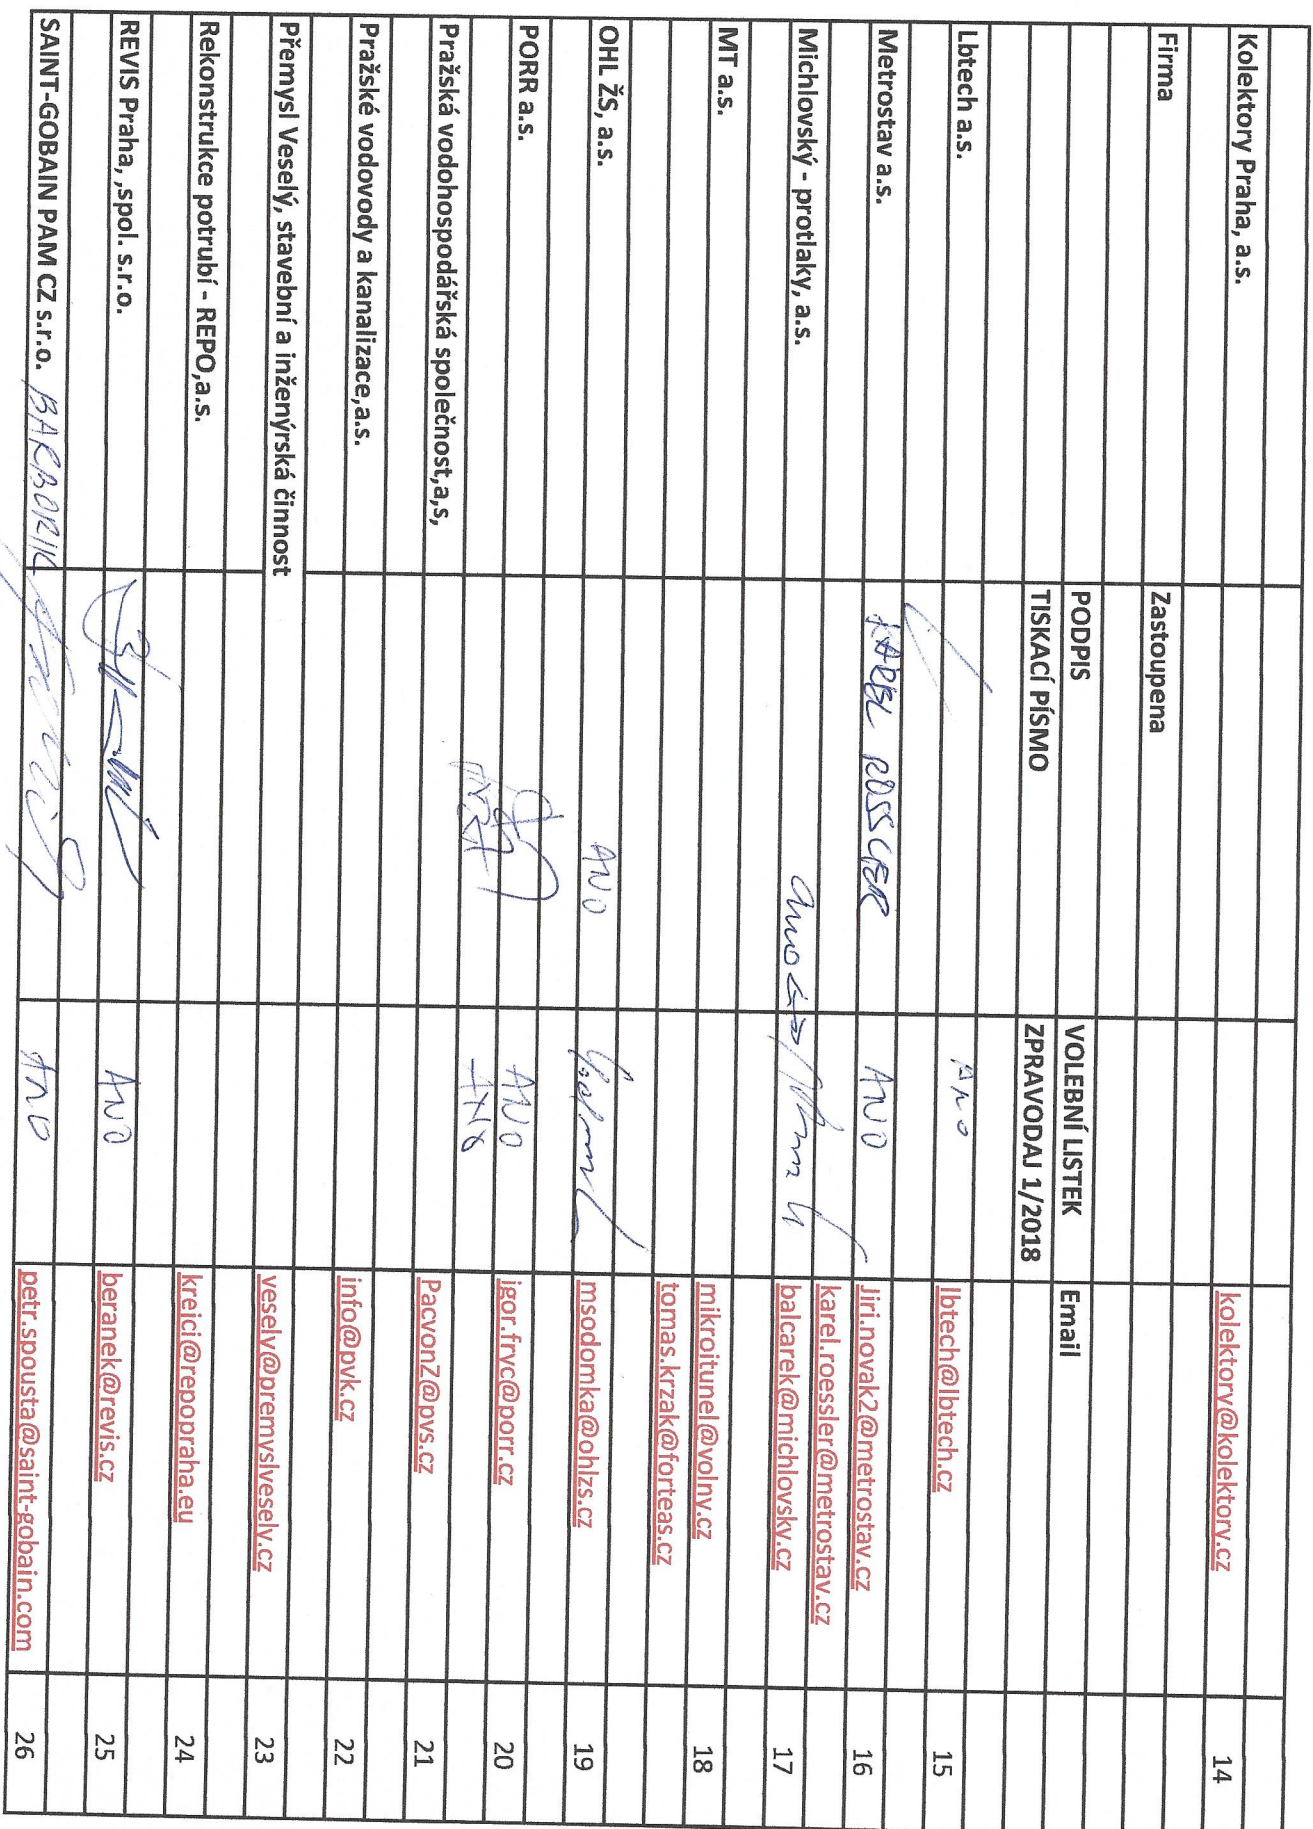 Kolektory Praha, a.s. kolektory@kolektory.cz 14
Firma Zastoupena
PODPIS VOLEBNÍ LISTEK Email
TISKACÍ PÍSMO ZPRAVODAJ 1/2018
Lbtech a.s. Ano lbtech@lbtech.cz 15
Metrostav a.s. KAREL ROSSLER ANO Jiri.novak2@metrostav.cz 16
karel.roessler@metrostav.cz
Michlovský - protlaky, a.s. ano balcarek@michlovsky.cz 17
MT a.s. mikroitunel@volny.cz 18
tomas.krzak@forteas.cz
OHL ŽS, a.s. ANO msodomka@ohlzs.cz 19
PORR a.s. ANO igor.fryc@porr.cz 20
Pražská vodohospodářská společnost,a,s, PacvonZ@pvs.cz 21
Pražské vodovody a kanalizace,a.s. info@pvk.cz 22
Přemysl Veselý, stavební a inženýrská činnost vesely@premyslvesely.cz 23
Rekonstrukce potrubí - REPO,a.s. krejci@repopraha.eu 24
REVIS Praha, ,spol. s.r.o. ANO beranek@revis.cz 25
SAINT-GOBAIN PAM CZ s.r.o. BARBORIK ANO petr.spousta@saint-gobain.com 26